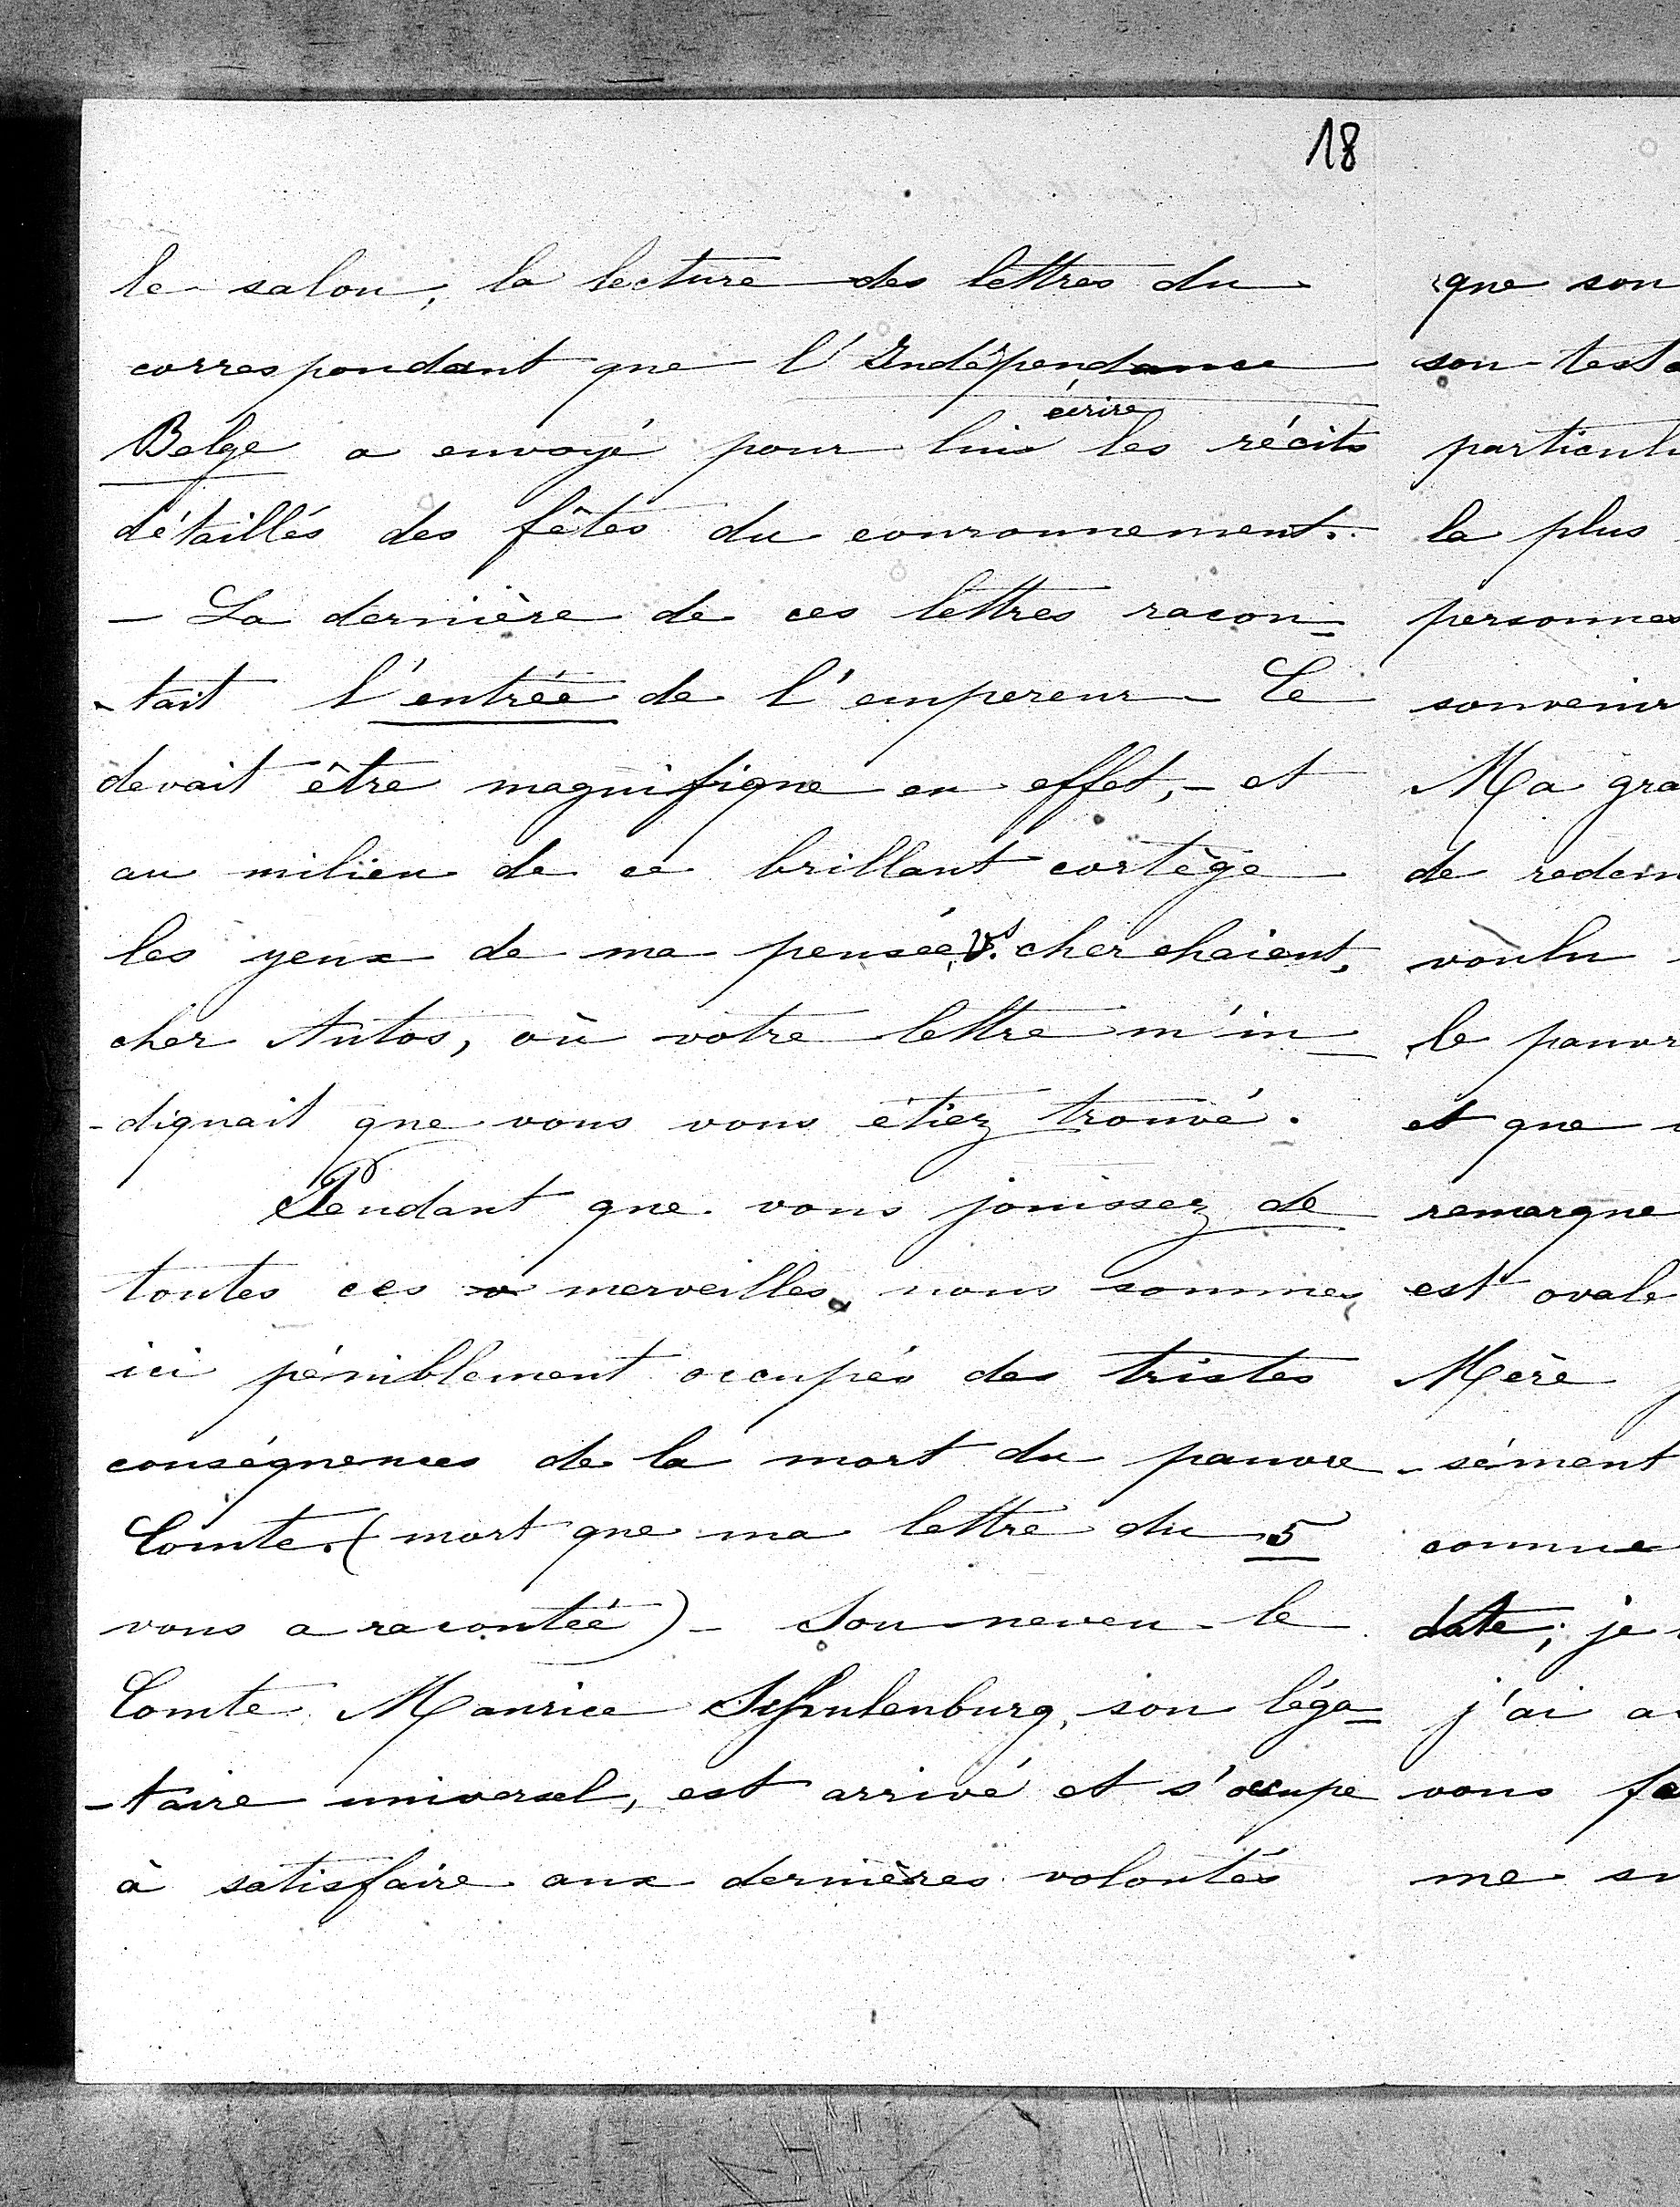 18
le salon, la lecture des lettres du
correspondant que l'Indépendance
écrire
Belge a envoyé pour lui les récits
détaillés des fêtes du couronnement.
- La dernière de ces lettres racon-
-tait l'entrée de l'empereur - Ce
devait être magnifique en effet, - et
au milieu de ce brillant cortège
les yeux de ma pensée vs. cherchaient,
cher Antos, où votre lettre m'in-
-diquait que vous vous étiez trouvé.
Pendant que vous jouissez de
toutes ces merveilles, nous sommes
ici péniblement occupés des tristes
conséquences de la mort du pauvre
Comte. (mort que ma lettre du 5
vous a racontée) - Son neveu le
Comte Maurice Schulenburg, son léga-
-taire universel, est arrivé et s'occupe
à satisfaire aux dernières volontés
que son
son test
particuli
la plus
personnes
souvenir
Ma gra
de redem
voulu
le pauvr
et que
remarque
est ovale
Mère
-sément
comme
date; je
j'ai a
vous fa
me su